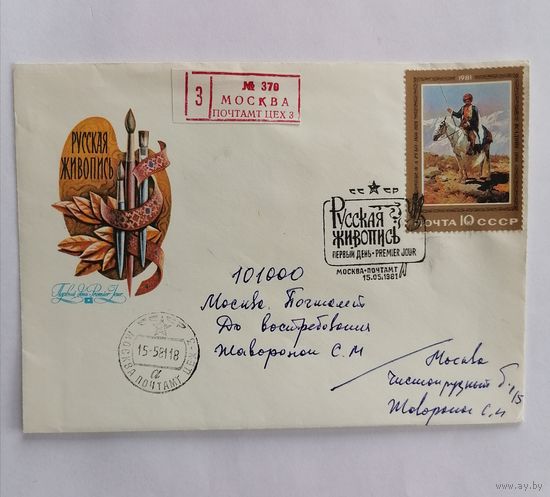 РУССКАЯ
ЖИВОПИСЬ
Первый день · Premier Jour
З
№ 370
МОСКВА
ПОЧТАМТ ЦЕХ 3
1981
ПОЧТА 10 СССР
СС СР
Русская
живопись
ПЕРВЫЙ ДЕНЬ · PREMIER JOUR
МОСКВА-ПОЧТАМТ
15.05.1981
101000
Москва. Почтамт
До востребования
Жаворонок С. М
СССР
15-5-8118
а
МОСКВА ПОЧТАМТ ЦЕХ-3
Москва
Чистопрудный б.
Жаворонок С. М
www.ay.by